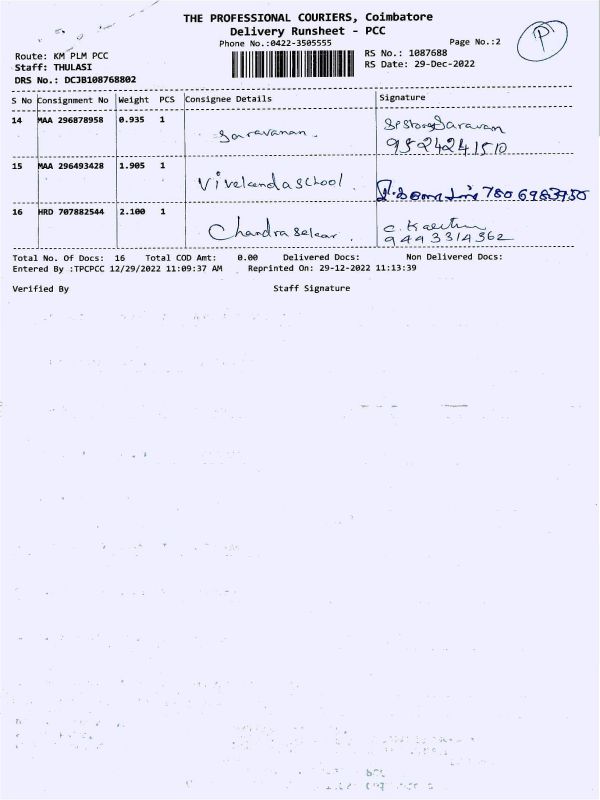 THE PROFESSIONAL COURIERS, Coimbatore
Delivery Runsheet - PCC
Phone No.:0422-3505555
Page No.:2
P
Route: KM PLM PCC
RS No.: 1087688
Staff: THULASI
RS Date: 29-Dec-2022
DRS No.: DCJB108768802
S No Consignment No Weight PCS Consignee Details Signature
14 MAA 296878958 0.935 1 Saravanan. SpStores Saravan
9524241510
15 MAA 296493428 1.905 1 Vivekanda School. 780 6983950
16 HRD 707882544 2.100 1 Chandra Sekar. C. 
9443314362
Total No. Of Docs: 16 Total COD Amt: 0.00 Delivered Docs: Non Delivered Docs:
Entered By :TPCPCC 12/29/2022 11:09:37 AM Reprinted On: 29-12-2022 11:13:39
Verified By Staff Signature